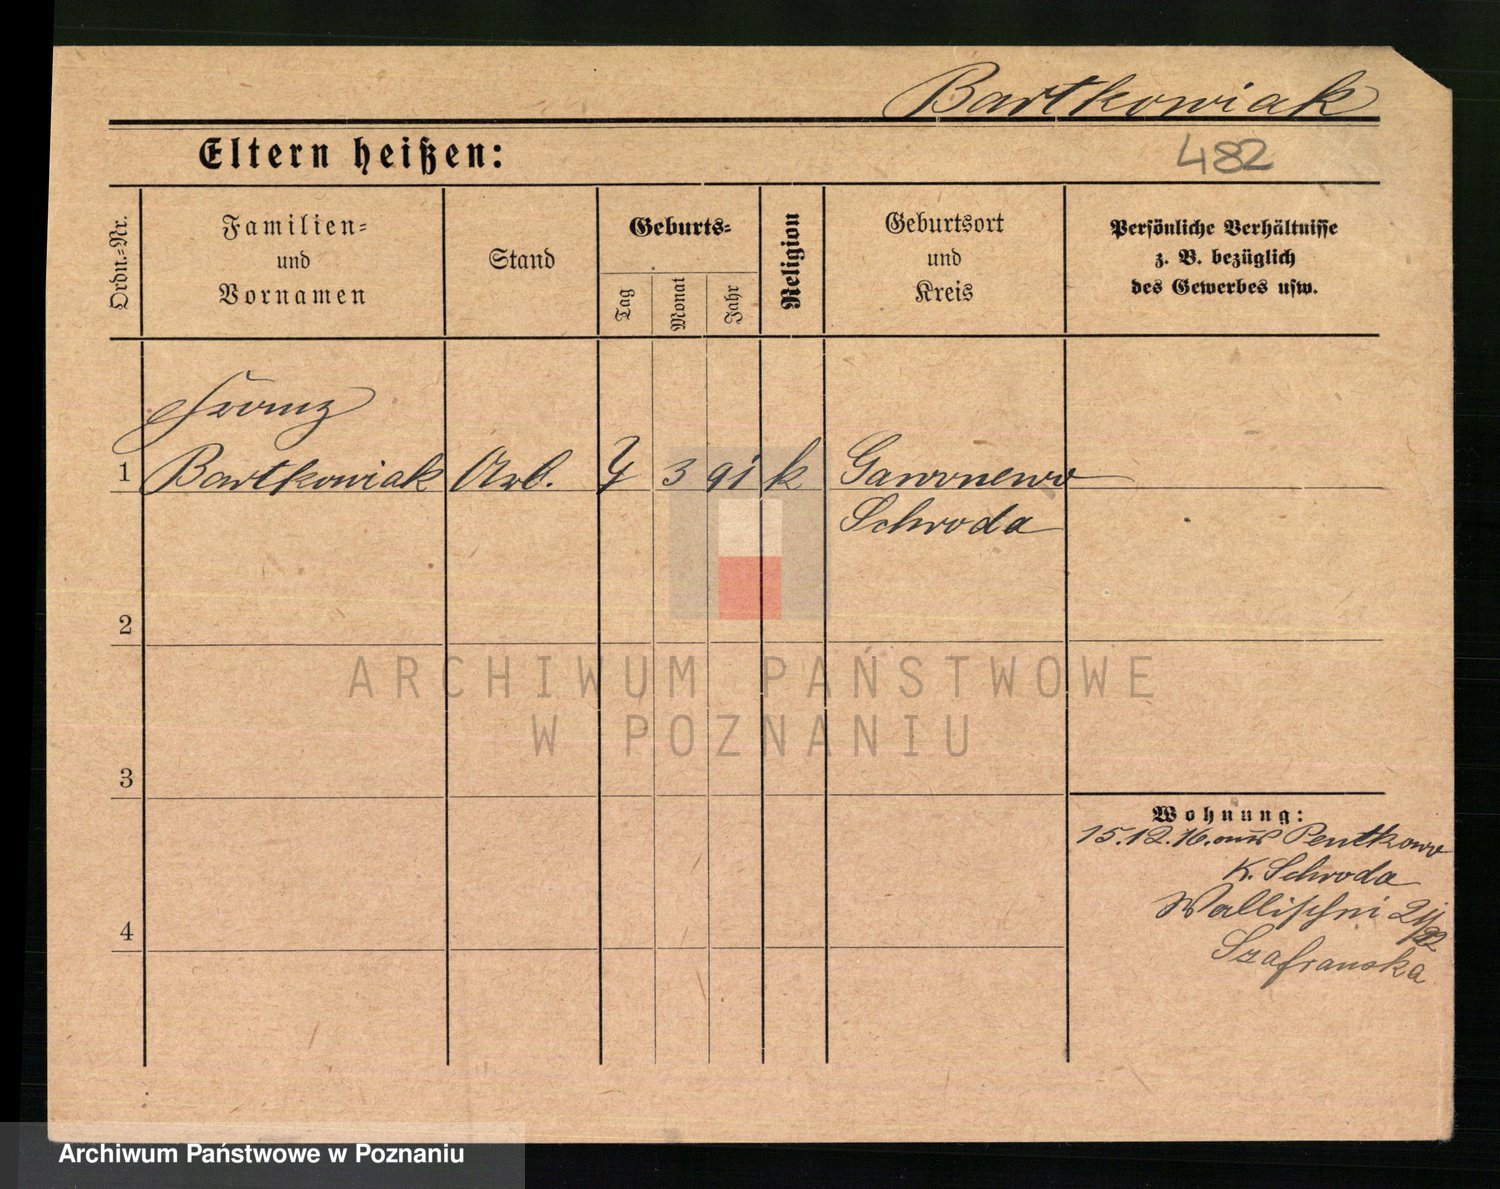 Bartkowiak
Eltern heißen:
482
Ordn.=Nr.
Familien=
und
Vornamen
Stand
Geburts=
Tag
Monat
Jahr
Religion
Geburtsort
und
Kreis
Persönliche Verhältnisse
z. B. bezüglich
des Gewerbes usw.
Franz
1 Bartkowiak Arb. 3 91 k Gawronewo
Schroda
2
ARCHIWUM PAŃSTWOWE
W POZNANIU
3
Wohnung:
15.12.16. aus Pentkowo
K. Schroda
Wallischei
4
Szafranska
Archiwum Państwowe w Poznaniu